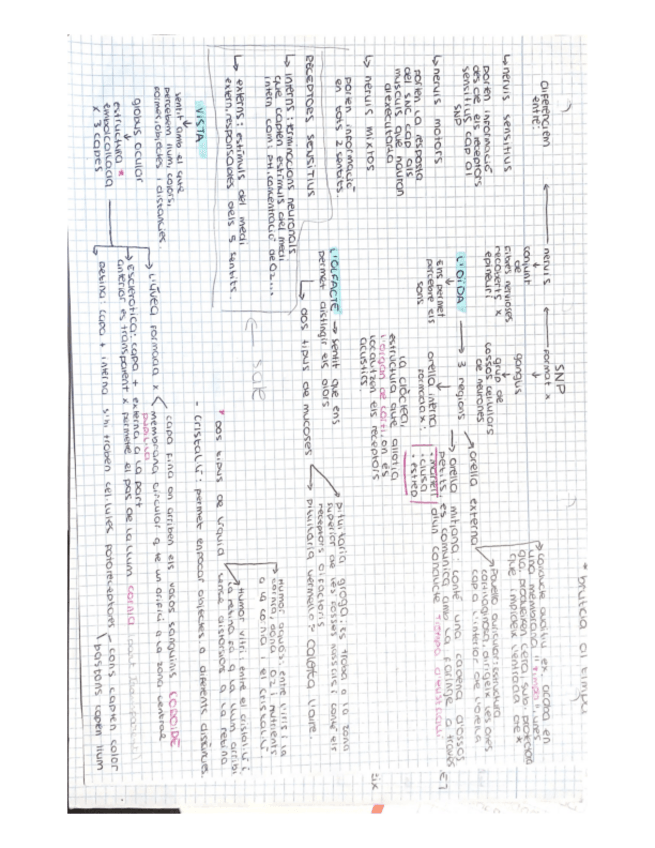 SNP
format x
nervis
ganglis
grup de
cossos cel·lulars
de neurones
conjunt
de
fibres nervioses
recoberts x
epineuri
Diferenciem
entre:
nervis sensitius
porten informació
des de els receptors
sensitius cap al
SNP
nervis motors
porten la resposta
del SNC cap als
musculs que hauran
d'executarla
nervis mixtos
porten informació
en tots 2 sentits.
L'OÏDA
ens permet
percebre els
sons
3 regions
orella externa
Pavelló auricular: estructura
cartilaginosa, dirigeix les ones
cap a l'interior de l'orella
conducte auditiu ex. acaba en
una membrana "timpà", unes
gla. produeixen cera, sub. protectora
que impideix l'entrada de x
* brutcia al timpa
orella mitjana: conté una cadena d'ossos
petits, es comunica amb la faringe a través
d'un conducte
· martell
· clusa
· estrep
orella interna
formada x:
la còclea,
estructura que allotja
l'òrgan de corti, on es
localitzen els receptors
acústics
RECEPTORS SENSITIUS
interns: terminacions neuronals
que capten estímuls del medi
intern com: PH, concentració de O2...
externs: estímuls del medi
extern, responsables dels 5 sentits
L'OLFACTE
sentit que ens
permet distingir els olors
dos tipus de mucoses
pituitària groga: es troba a la zona
superior de les fosses nassals i conté els
receptors olfactoris
pituitària vermella: calefta l'aire.
VISTA
sentit amb el que
percebem llum, colors,
formes, objectes i distancies.
globus ocular
estructura *
embolcallada
x 3 capes
L'úvea formada x
capa fina on arriben els vasos sanguinis COROIDE
membrana circular q te un orifici a la zona central
pupil·la
Escleròtica: capa + externa a la part
anterior es transparent x permetre el pas de la llum còrnia
Retina: capa + interna s'hi troben cèl·lules fotoreceptores
cons capten color
bastons capten llum
* dos tipus de líquid
Humor aquós: entre l'iris i la
còrnia, dona O2 i nutrients
a la còrnia i el cristal·lí.
Humor vitri: entre el cristal·lí i
la retina fa q la llum arribi
sense distorsions a la retina
- cristal·lí: permet enfocar objectes a diferents distàncies.